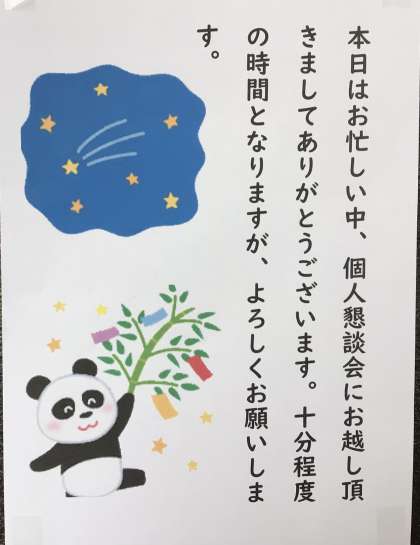 本日はお忙しい中、個人懇談会にお越し頂
きましてありがとうございます。十分程度
の時間となりますが、よろしくお願いしま
す。